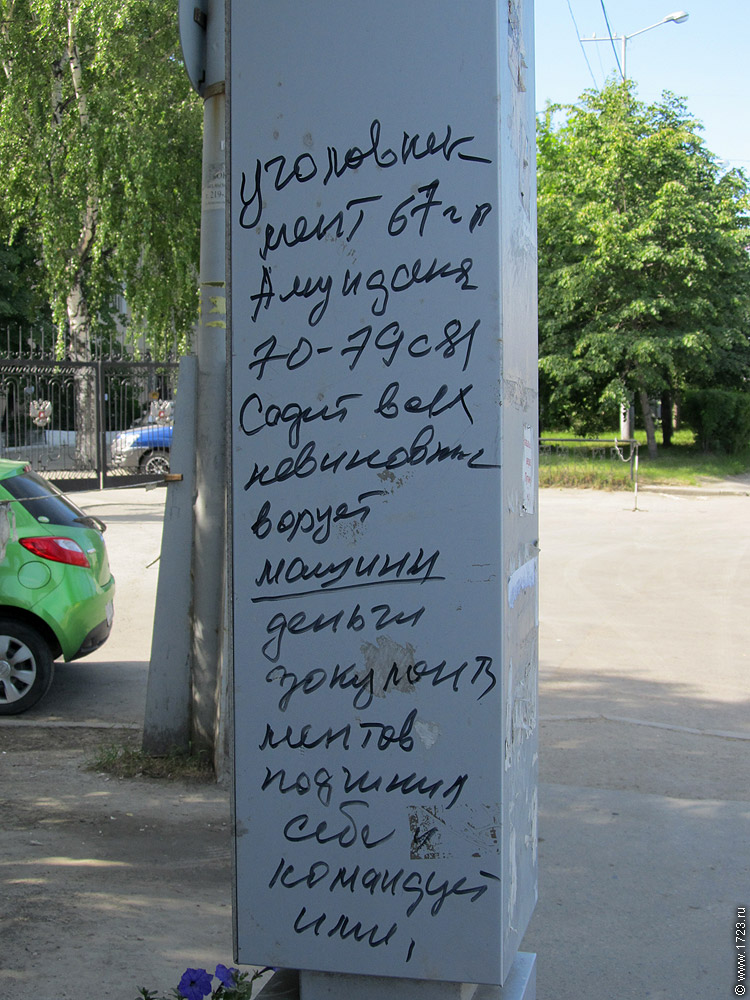 уголовник
мент 67 г.п
Амундсена
70-79с81
Садит всех
невиновных
ворует
машины
деньги
документы
ментов
подчинил
себе и
командует
ими,
© www.1723.ru